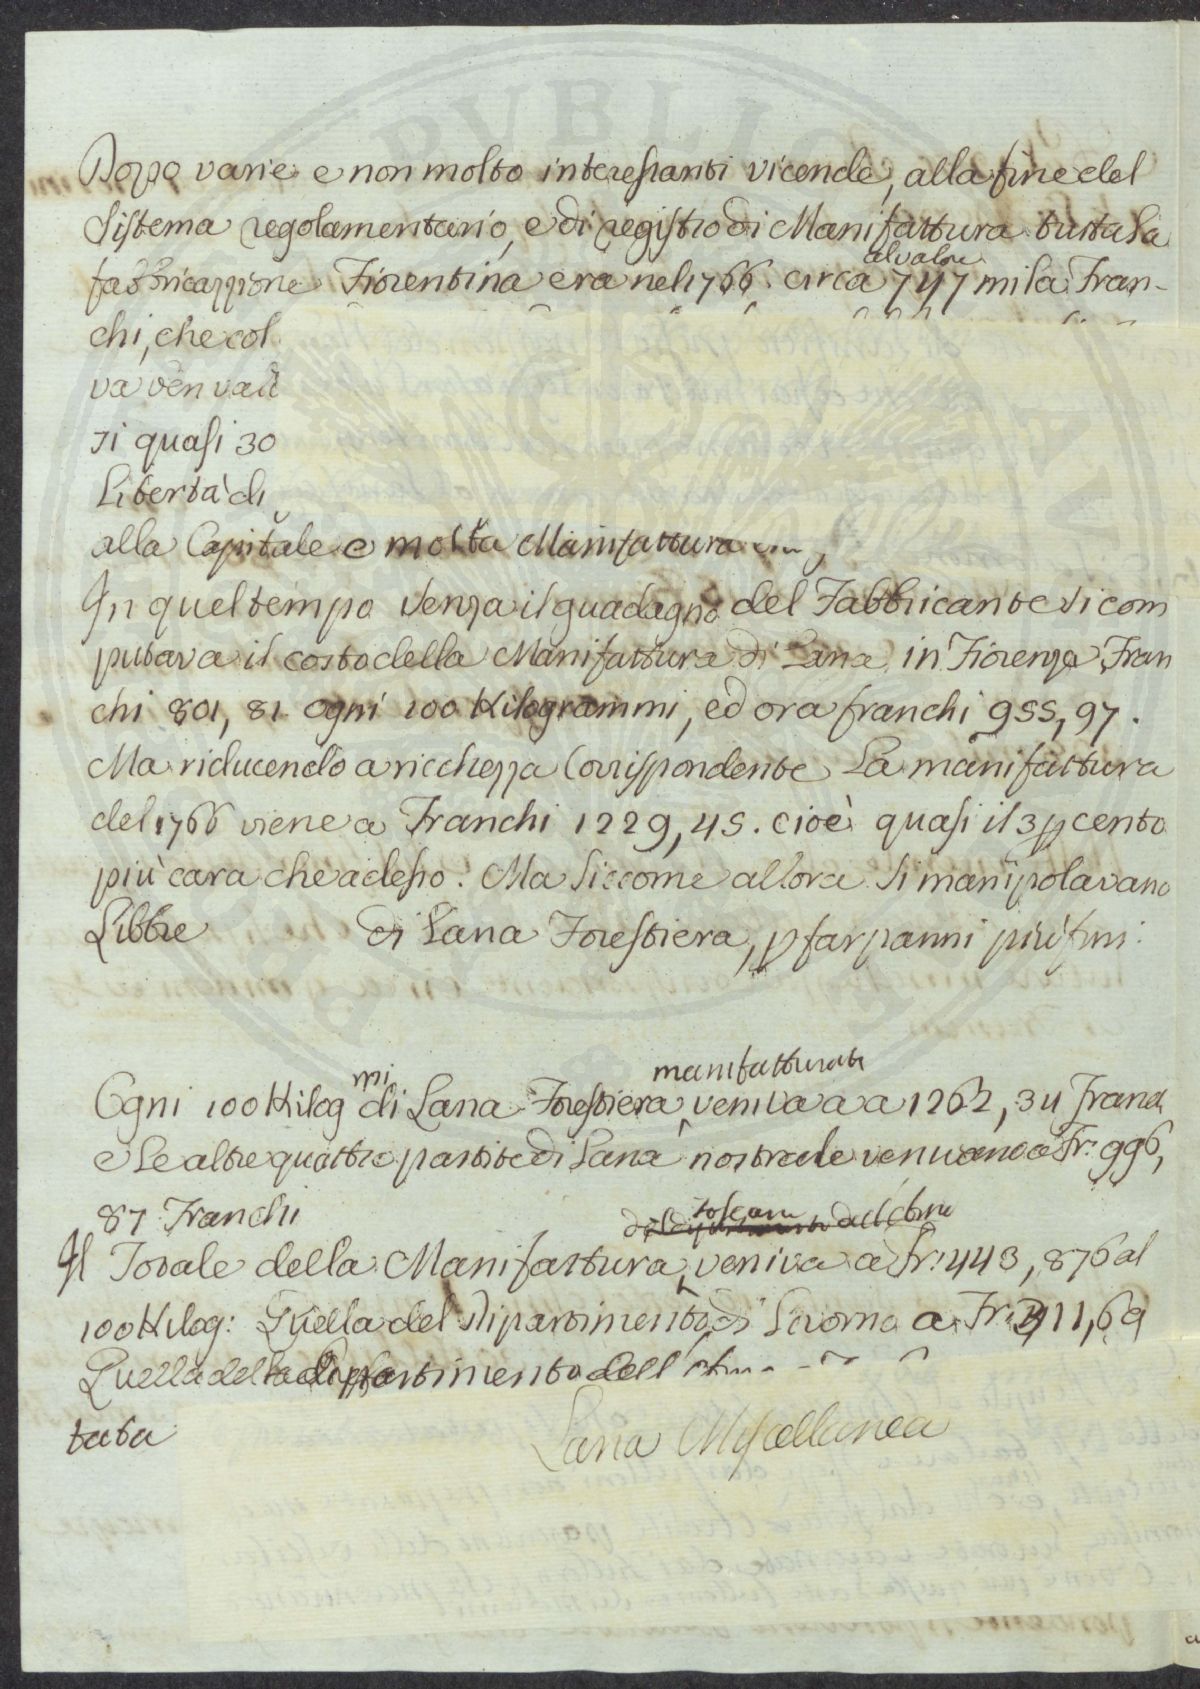 Doppo varie e non molto interessanti vicende, alla fine del
Sistema regolamentario, e di registro di Manifattura tutta la
al valore
fabbricazzione Fiorentina era nel 1766. circa 747 mila Fran-
chi, che col
va
ri quasi 30
Libertà di
alla Capitale e molta Manifattura
In quel tempo senza il guadagno del Fabbricante si com
putava il costo della Manifattura di Lana in Fiorenza Fran
chi 801, 81 ogni 100 Kilogrammi, ed ora franchi 955, 97.
Ma riducendo a ricchezza Corrispondente La manifattura
del 1766 viene a Franchi 1229, 45. cioè quasi il 3 p cento
più cara che adesso. Ma siccome allora si manipolavano
Libbre di Lana Forestiera, p far panni più fini.
manifatturata
Ogni 100 Kilog mi di Lana Forestiera veniva a a 1262, 34 Franch
e Le altre quattro partite di Lana nostrale venivano a Fr: 996,
87 Franchi
toscana
Il Totale della Manifattura veniva a Fr: 443, 876 al
100 Kilog: Quella del Dipartimento di Livorno a Fr: 411,69
Quella del Dipartimento dell
tata
Lana Miscellanea
PVBLIC